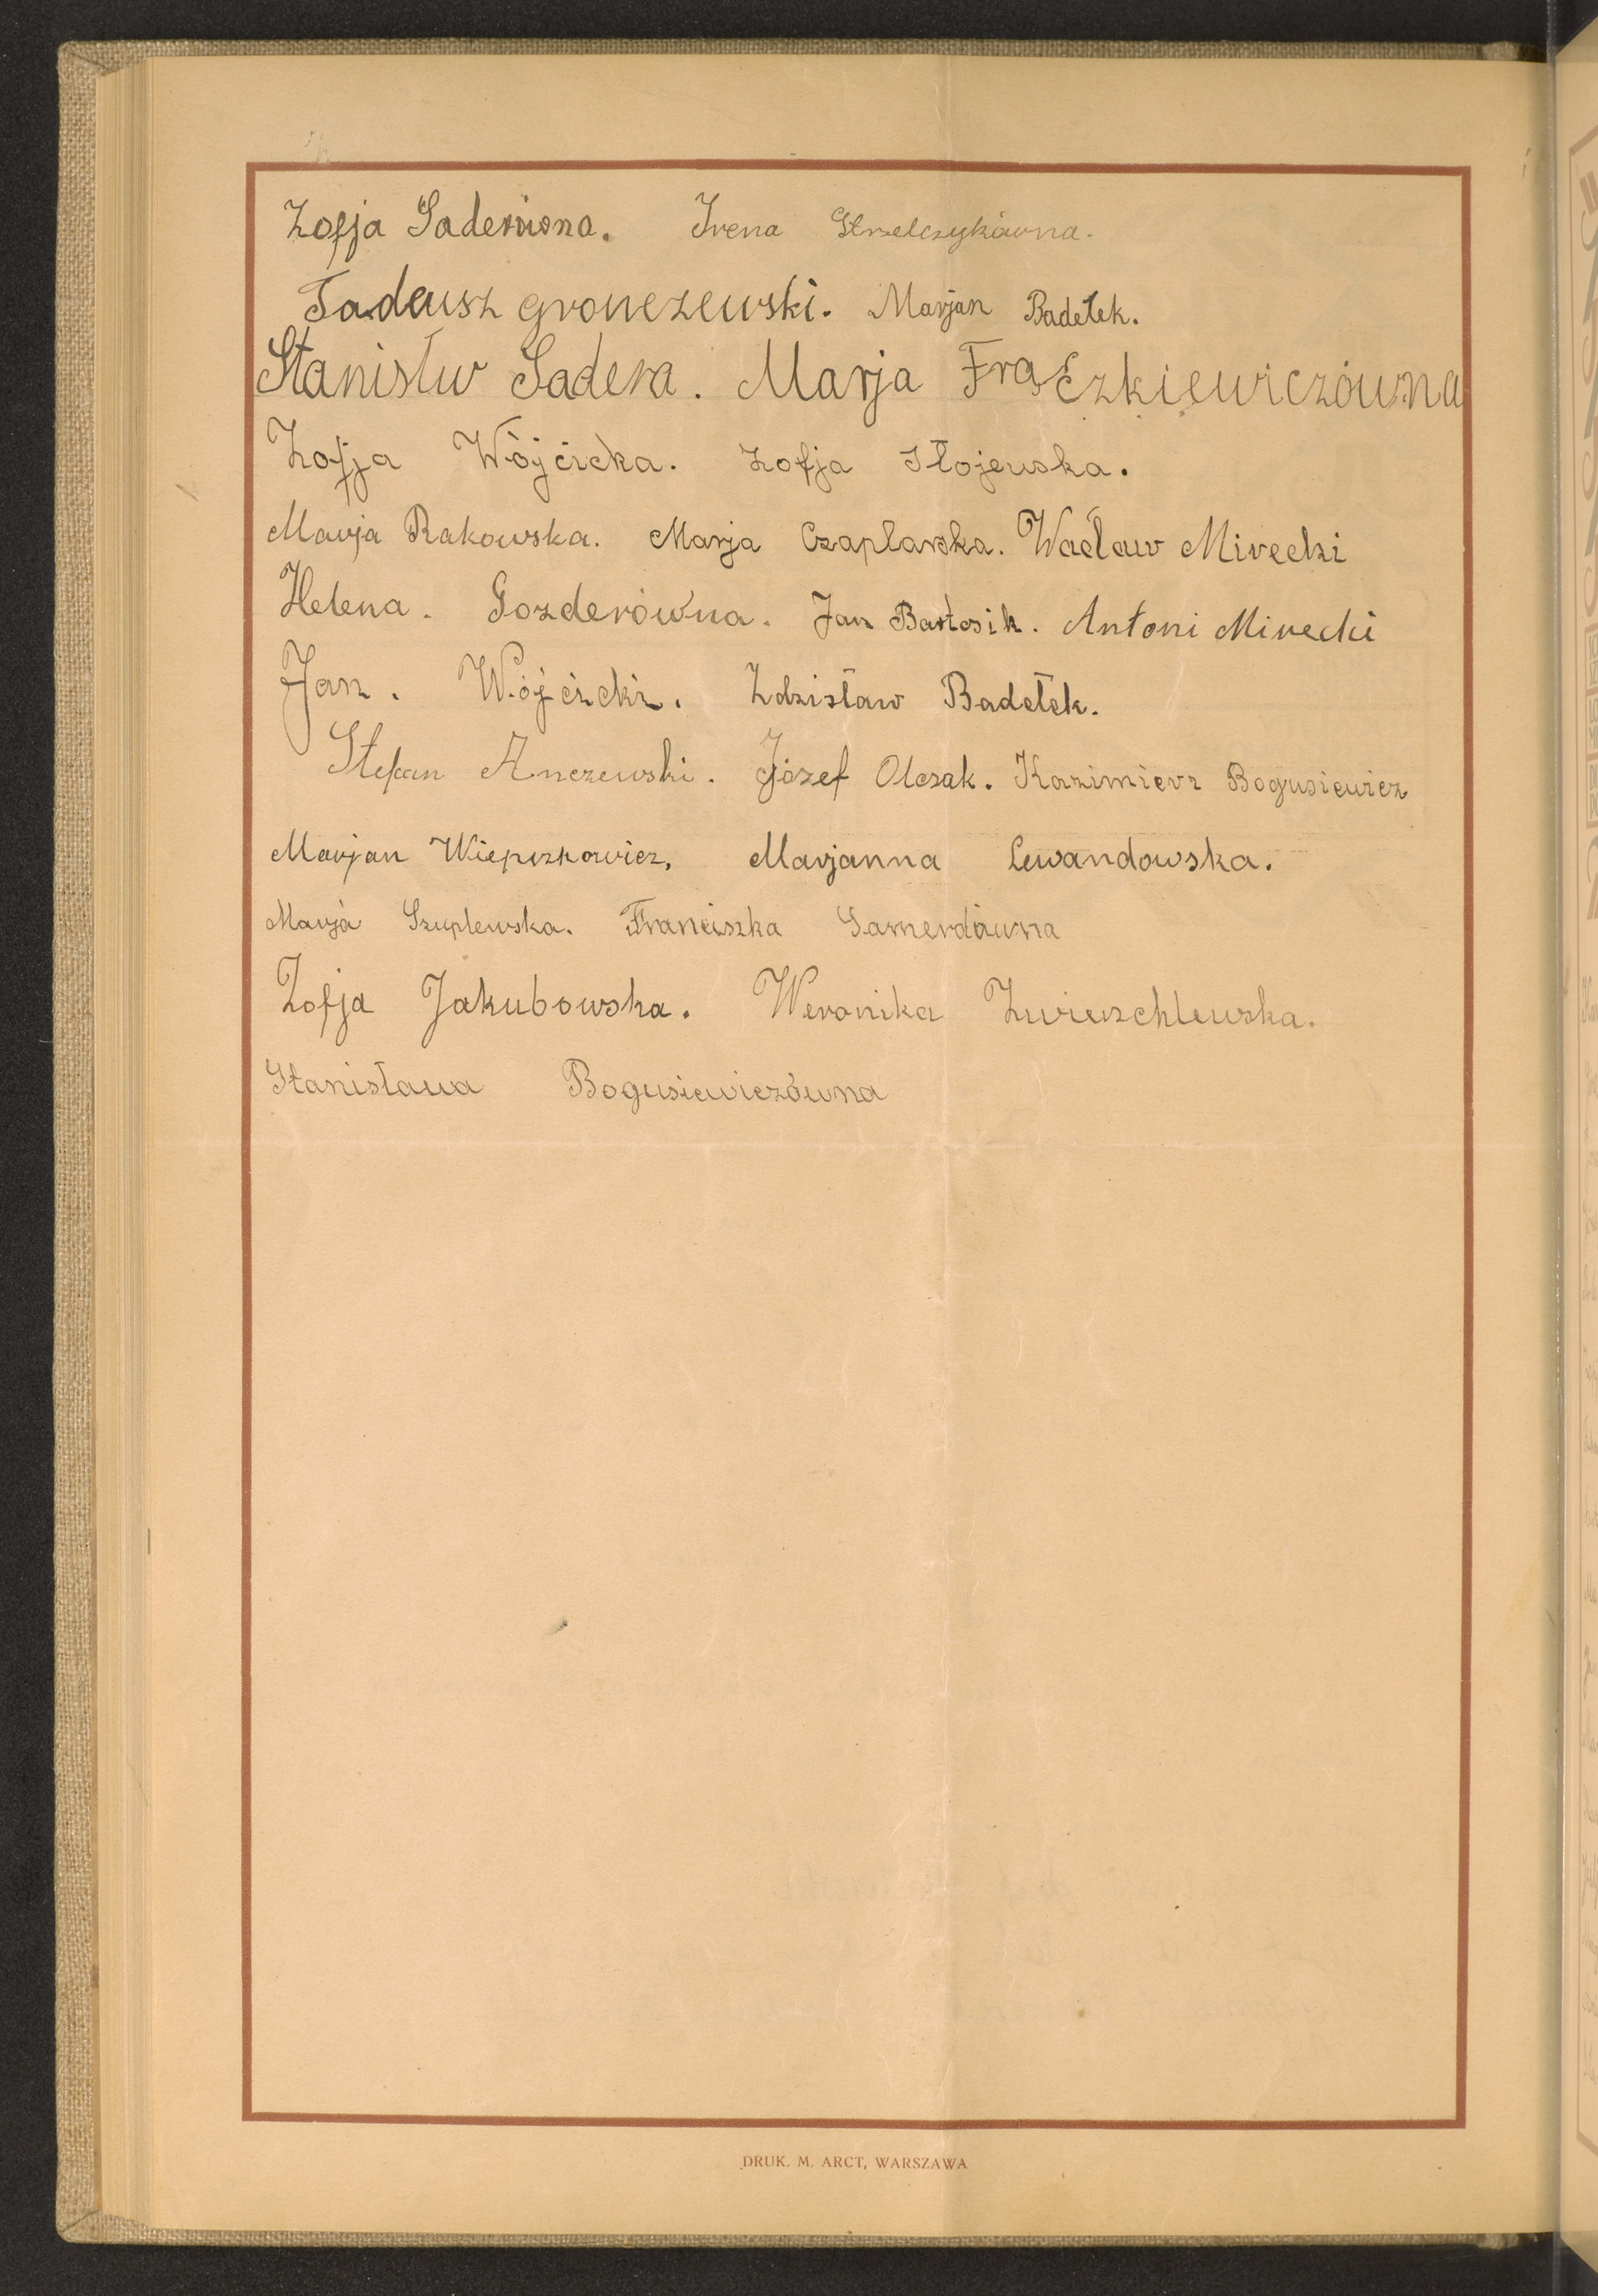 Zofja Saderówna. Irena Strzelczykówna.
Tadeusz gronczewski. Marjan Badełek.
Stanisłw Sadera. Marja Frączkiewiczówna
Zofja Wójcicka. Zofja Słojewska.
Marja Rakowska. Marja Czaplarska. Wacław Mirecki
Helena. Gozderówna. Jan Bartosik. Antoni Mirecki
Jan. Wójcicki. Zdzisław Badełek.
Stefan Anczewski. Józef Olczak. Kazimierz Bogusiewicz
Marjan Wieprzkowicz, Marjanna Lewandowska.
Marja Szuplewska. Franciszka Samerdówna
Zofja Jakubowska. Weronika Zwierzchlewska.
Stanisława Bogusiewiczówna
DRUK. M. ARCT, WARSZAWA